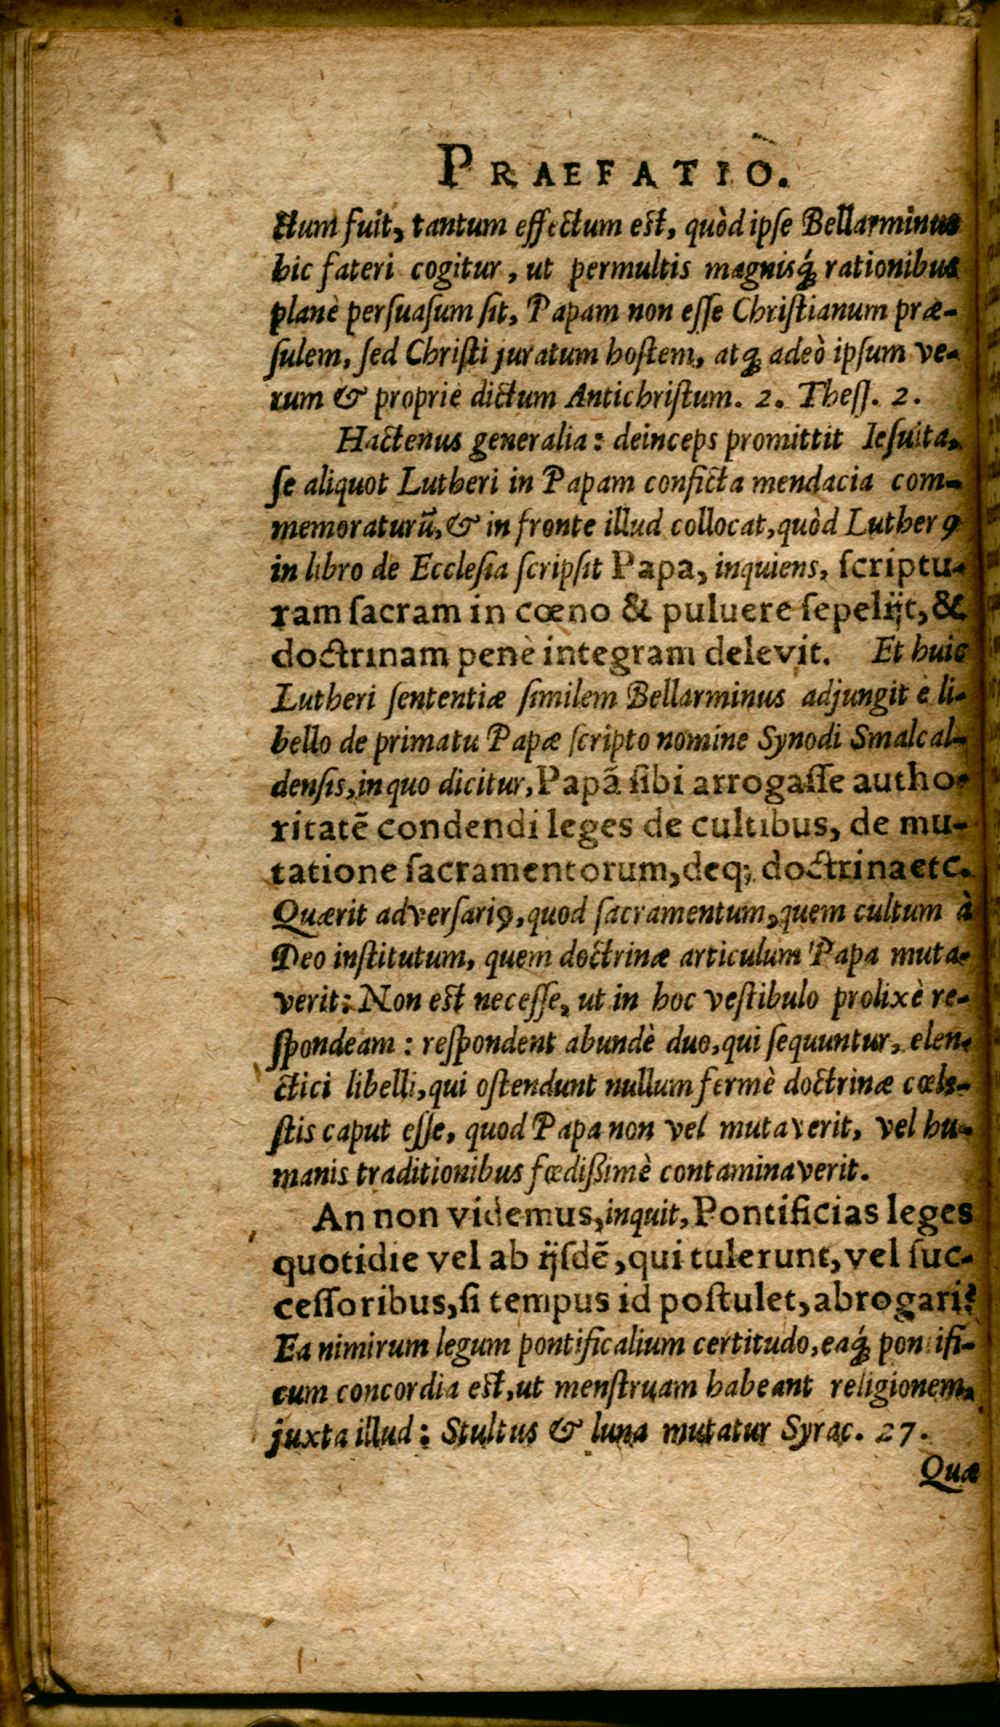 PRAEFATIO.
ctum fuit, tantum effectum est, quòd ipse Bellarminus
hic fateri cogitur, ut permultis magnisq́; rationibus
planè persuasum sit, Papam non esse Christianum præ-
sulem, sed Christi juratum hostem, atq́; adeò ipsum ve-
rum & propriè dictum Antichristum. 2. Thess. 2.
Hactenus generalia: deinceps promittit Iesuita,
se aliquot Lutheri in Papam conficta mendacia com-
memoraturũ, & in fronte illud collocat, quòd Lutherꝰ
in libro de Ecclesia scripsit Papa, inquiens, scriptu-
ram sacram in cœno & puluere sepelijt, &
doctrinam penè integram delevit. Et huic
Lutheri sententiæ similem Bellarminus adjungit è li-
bello de primatu Papæ scripto nomine Synodi Smalcal-
densis, in quo dicitur, Papã sibi arrogasse autho-
ritatẽ condendi leges de cultibus, de mu-
tatione sacramentorum, deq; doctrina etc.
Quærit adversariꝰ, quod sacramentum, quem cultum à
Deo institutum, quem doctrinæ articulum Papa muta-
verit: Non est necesse, ut in hoc vestibulo prolixè re-
spondeam: respondent abundè duo, qui sequuntur, elen-
ctici libelli, qui ostendunt nullum fermè doctrinæ cœle-
stis caput esse, quod Papa non vel mutaverit, vel hu-
manis traditionibus fœdißimè contaminaverit.
An non videmus, inquit, Pontificias leges
quotidie vel ab ijsdẽ, qui tulerunt, vel suc-
cessoribus, si tempus id postulet, abrogari?
Ea nimirum legum pontificalium certitudo, eaq́; pontifi-
cum concordia est, ut menstruam habeant religionem,
juxta illud: Stultus & luna mutatur Syrac. 27.
Quæ